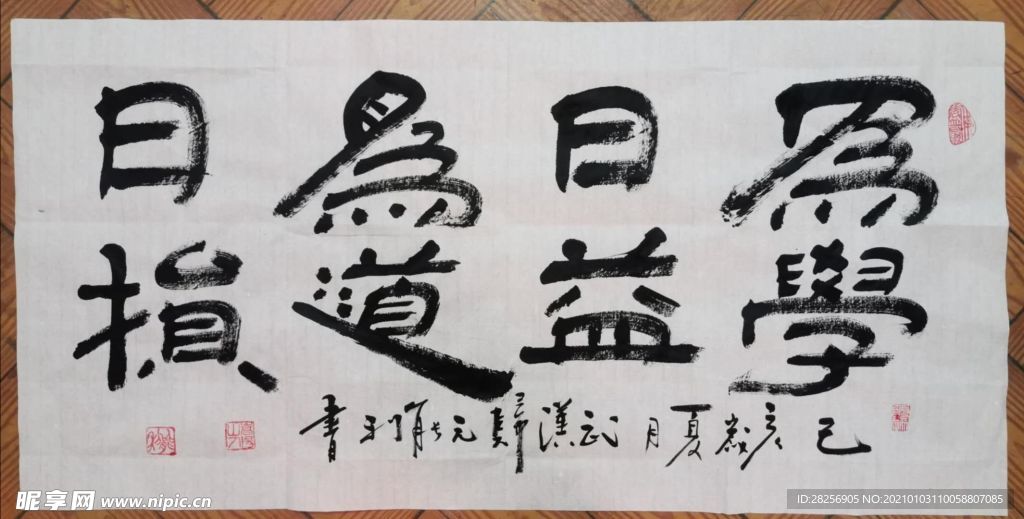 為學
日益
為道
日損
己亥歲夏月武漢歸元能利書
昵享网 www.nipic.cn
ID:28256905 NO:20210103110058807085